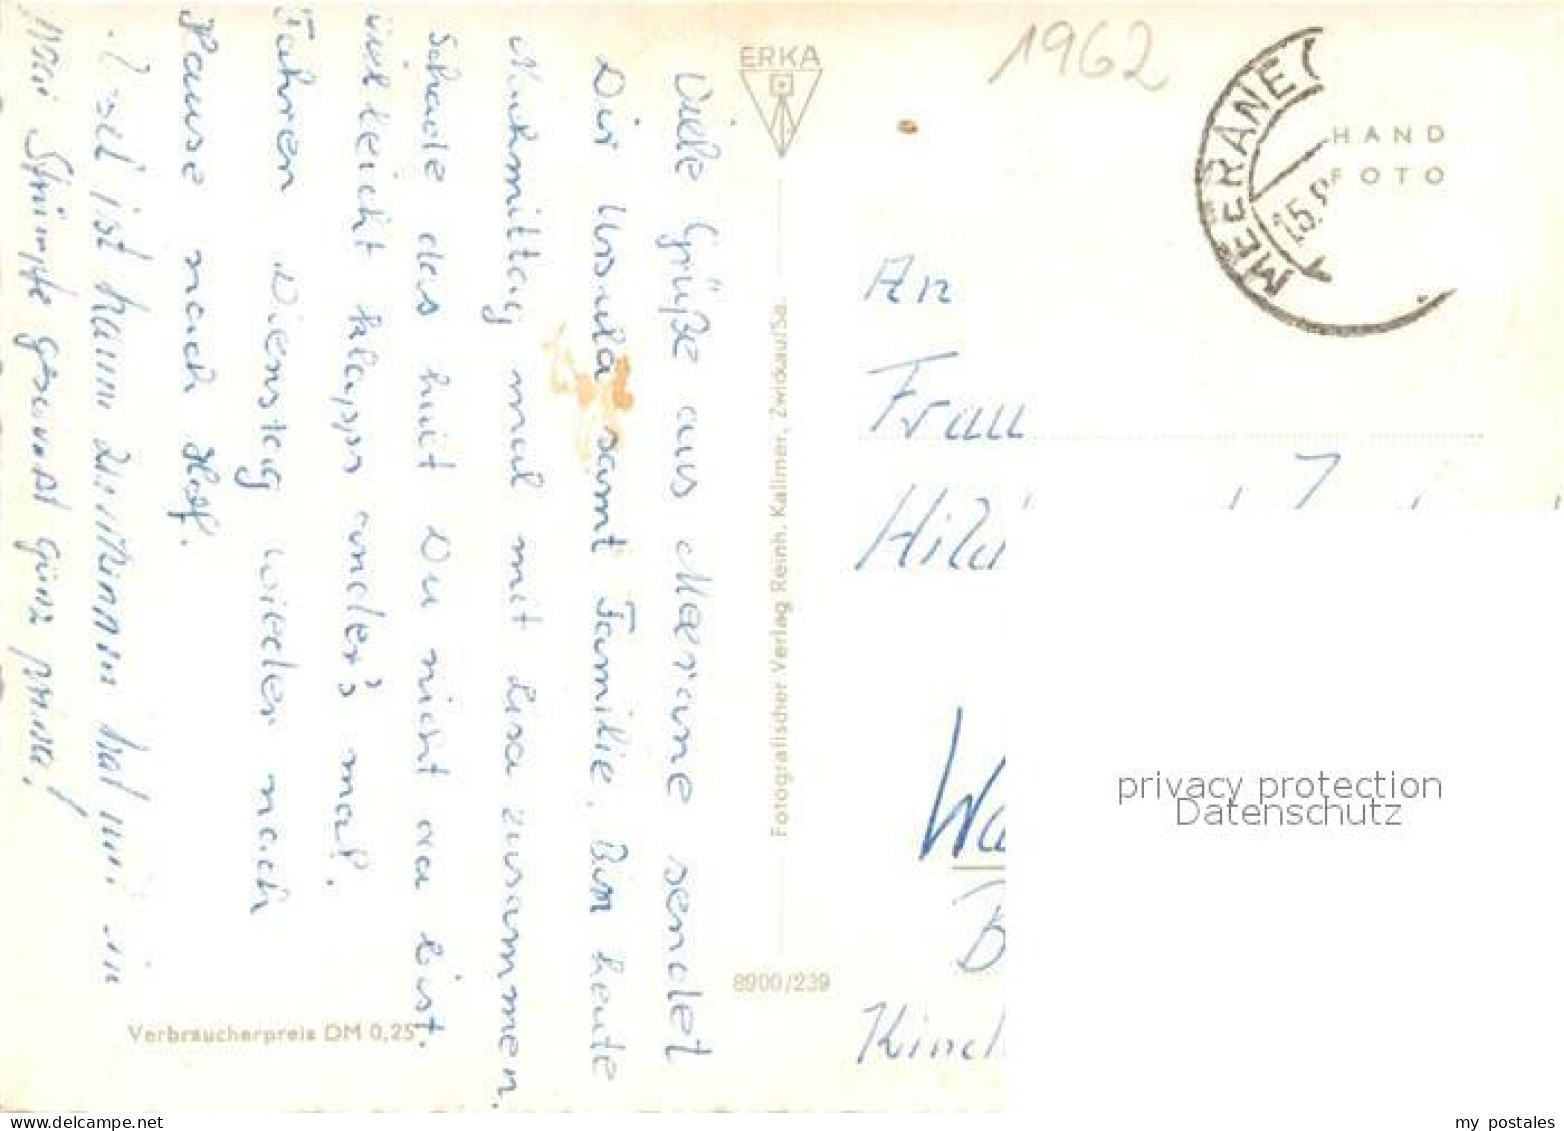 1962
ERKA
MEERANE
15.
HAND
FOTO
Viele Grüße aus Meerane sendet
Dir Ursula samt Familie. Bin heute
Nachmittag mal mit Lisa zusammen.
Schade das heut Du nicht da bist.
Vielleicht klappt's mal.
Fahren Dienstag wieder nach
Hause nach Hof.
ist kaum hat mir in
Strümpfe prima!
Fotografischer Verlag Reinh. Kallmer, Zwickau/Sa.
8900/239
Verbraucherpreis DM 0,25
An
Frau
Hild
Wa
B
Kind
privacy protection
Datenschutz
my postales